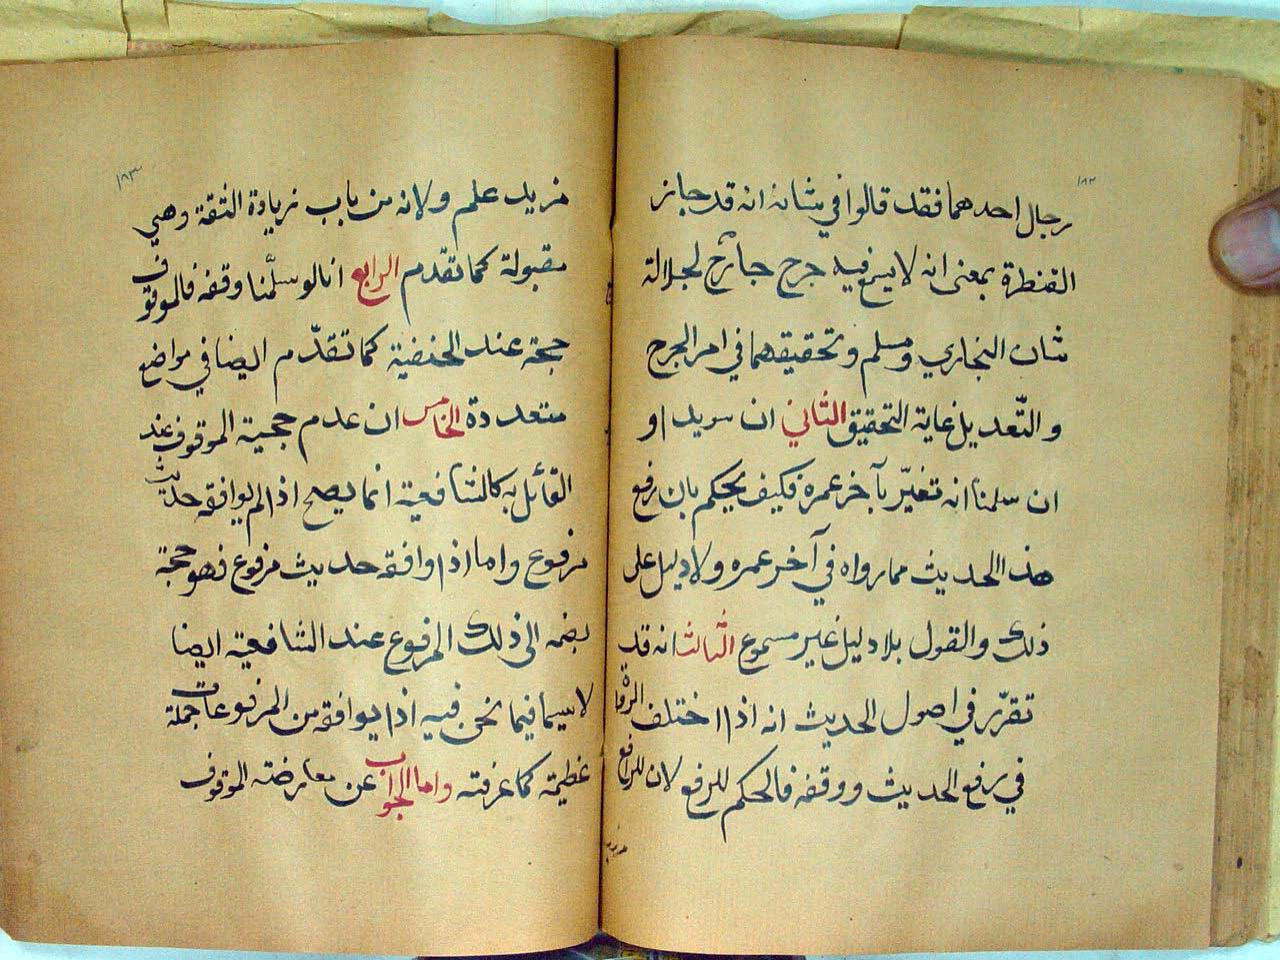 ١٨٢
رجال احدهما فقد قالوا في شانه انه قد جاز
القنطرة بمعنى انه لا يسمع فيه جرح جارح لجلالة
شان البخاري ومسلم وتحقيقهما في امر الجرح
والتّعديل غاية التحقيق الثاني ان سويدا و
ان سلمنا انه تغيّر بآخر عمره فكيف يحكم بان رفع
هذا الحديث مما رواه في آخر عمره ولا دليل على
ذلك والقول بلا دليل غير مسموع الثالث انه قد
تقرّر في اصول الحديث انه اذا اختلف الرواة
في رفع الحديث ووقفه فالحكم للرفع لان للرافع
مزيد
١٨٣
مزيد علم ولانه من باب زيادة الثقة وهي
مقبولة كما تقدّم الرابع انا لو سلّمنا وقفه فالموقوف
حجة عند الحنفية كما تقدّم ايضا في مواضع
متعددة الخامس ان عدم حجية الموقوف عند
القائل به كالشافعية انما يصح اذا لم يوافقه حديث
مرفوع واما اذا وافقه حديث مرفوع فهو حجة
بضمه الى ذلك المرفوع عند الشافعية ايضا
لا سيما فيما نحن فيه اذ يوافقه من المرفوعات جملة
عظيمة كما عرفته واما الجواب عن معارضته الموقوف